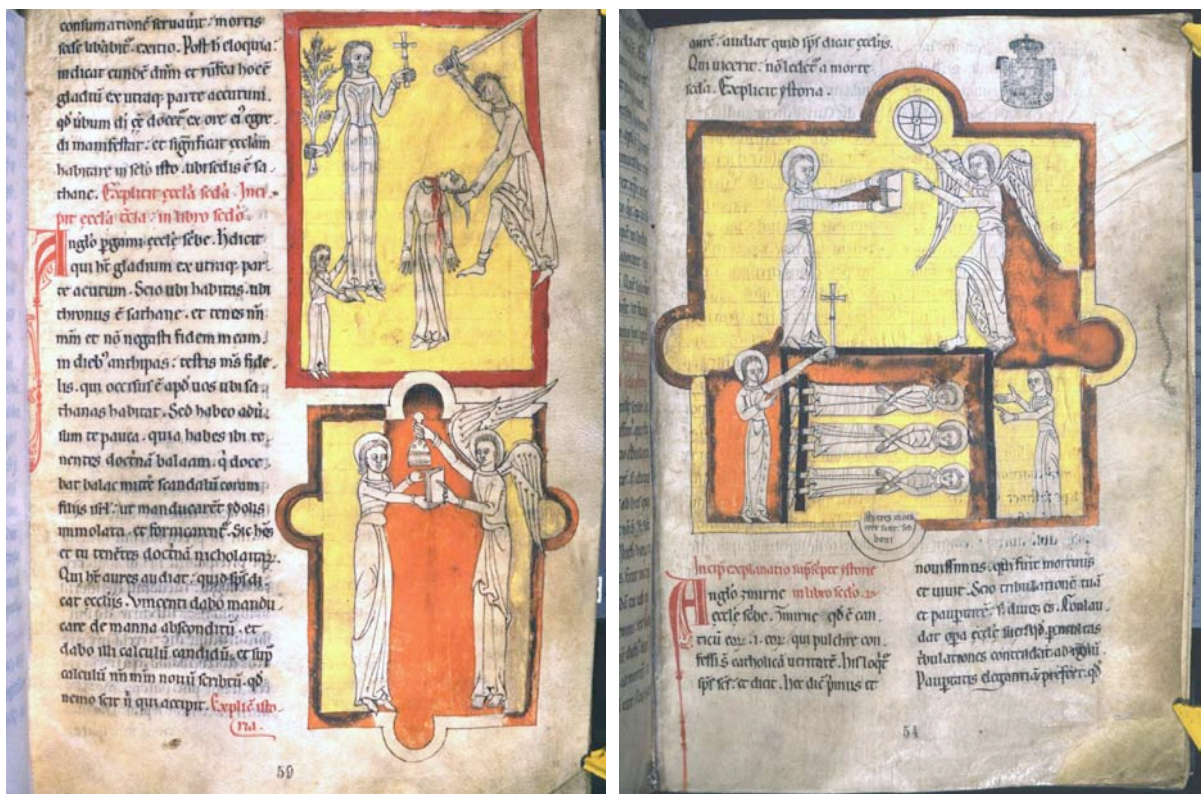 consumatione seruauit: mortis
sede exitio. Post h eloquia:
indicat eunde dnm et rufea hoc e
gladiu ex utraq parte accutum.
qd ubum di ee ex ore ei egre
di manifestat: et significat eccliam
habitare in selo isto. ubi sedis e sa
thane. Explicit eccla seda. Inci
pit eccla in libro sedo.
Anglo pgami eccle scbe. h dicit
qui ht gladium ex utraq par
te acutum. Scio ubi habitas. ubi
thronus e sathane. et tenes nm
mm et no negasti fidem meam.
in dieb anthipas: testis ms fide
lis. qui occisus e apd uos ubi sa
thanas habitat. Sed habeo adu
sum te pauca. quia habes ibi te
nentes doctna balaam. q doce
bat balac mitte scandalu coram
filiis isrl: ut manducaret ydolis
immolata. et fornicarent. Sic hes
et tu tenetes doctna nicholaitar.
Qui ht aures audiat: quid sps di
cat eccliis. Vincenti dabo mandu
care de manna absconditu. et
dabo illi calculu candidu. et sup
calculu nm nouu scribtu. qd
nemo scit n qui accipit. Explic isto
ria.
59
aure. audiat quid sps dicat eccliis.
Qui uicerit: no ledet a morte
seda. Explicit ystoria.
boni
Incip explanatio supscpte ystorie
Anglo zmirne in libro sedo.
eccle scbe. Zmirne qd e can
ticu eor. i. eor. qui pulchre con
fessi s catholica ueritate. His loqt
sps scs. et dicit. hec dic pmus et
nouissimus. qui fuit mortuus
et uiuit. Scio tribulatione tua
et paupertate. s diues es. Conlau
dat opa eccle
tbulationes contendat ad
Paupertatis elegantia prefert. qd
54